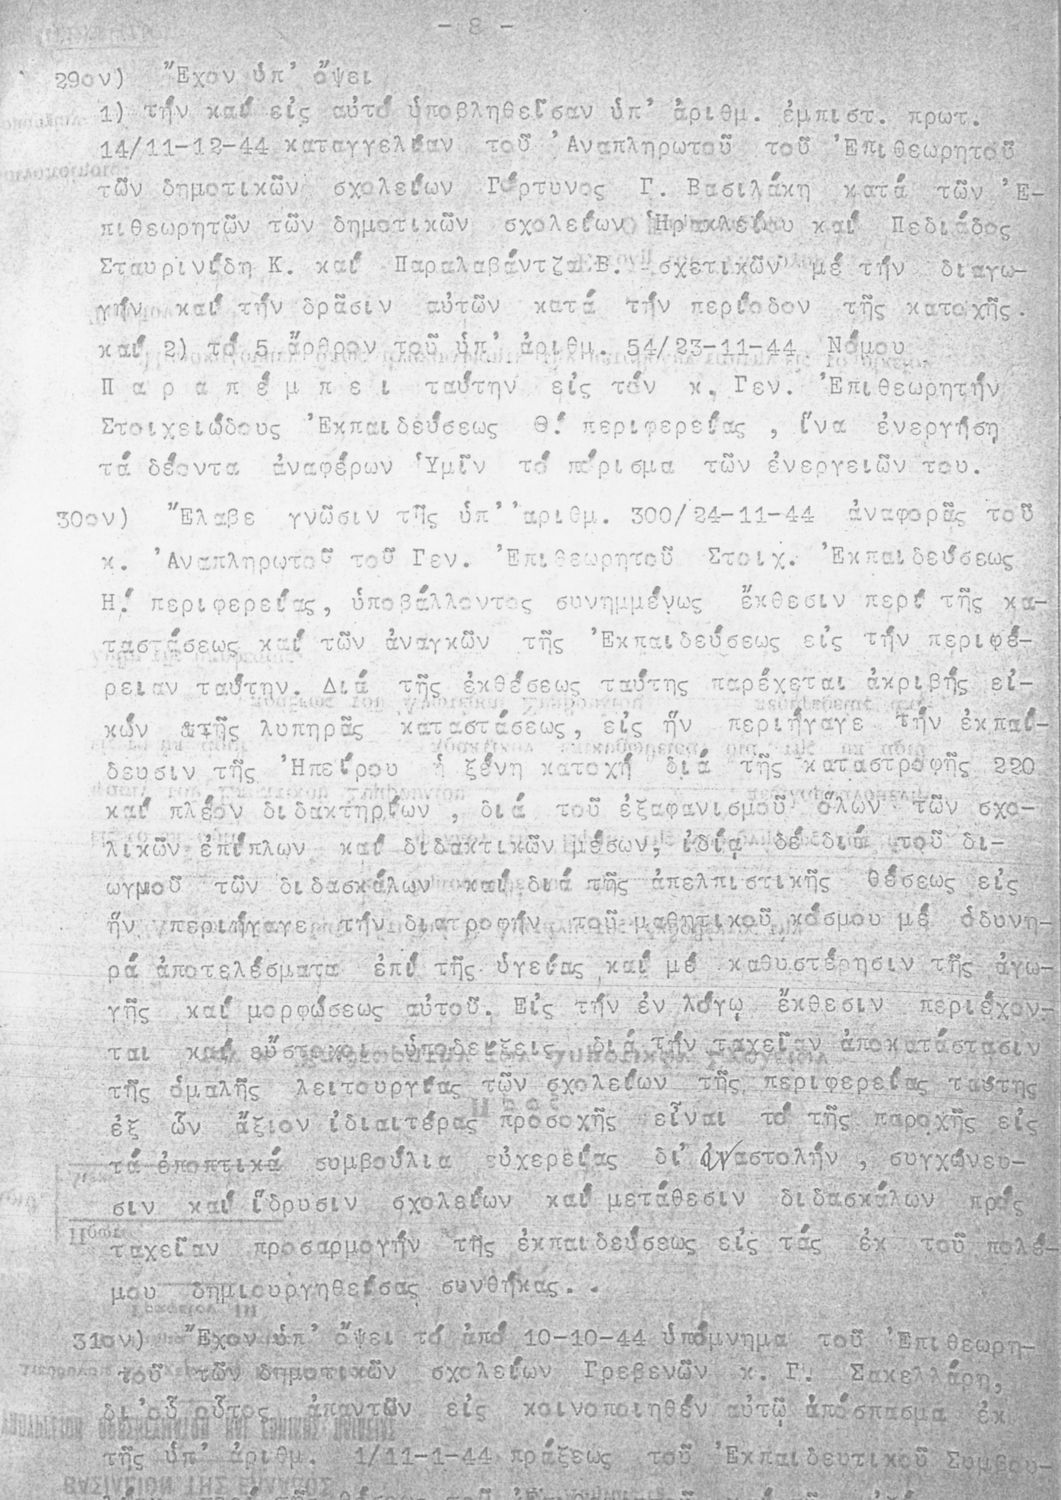 - 8 -
29ον) Ἔχον ὑπ' ὄψει
1) τήν καί εἰς αὐτό ὑποβληθεῖσαν ὑπ' ἀριθμ. ἐμπιστ. πρωτ.
14/11-12-44 καταγγελίαν τοῦ Ἀναπληρωτοῦ τοῦ Ἐπιθεωρητοῦ
τῶν δημοτικῶν σχολείων Γόρτυνος Γ. Βασιλάκη κατά τῶν Ἐ-
πιθεωρητῶν τῶν δημοτικῶν σχολείων Ἡρακλείου καί Πεδιάδος
Σταυρινίδη Κ. καί Παραλαβάντζα Ε. σχετικῶν μέ τήν διαγω-
γήν καί τήν δρᾶσιν αὐτῶν κατά τήν περίοδον τῆς κατοχῆς.
καί 2) τό 5 ἄρθρον τοῦ ὑπ' ἀριθμ. 54/23-11-44 Νόμου
Π α ρ α π έ μ π ε ι ταύτην εἰς τόν κ. Γεν. Ἐπιθεωρητήν
Στοιχειώδους Ἐκπαιδεύσεως Θ! περιφερείας , ἵνα ἐνεργήση
τά δέοντα ἀναφέρων Ὑμῖν τό πόρισμα τῶν ἐνεργειῶν του.
30ον) Ἔλαβε γνῶσιν τῆς ὑπ' ἀριθμ. 300/24-11-44 ἀναφορᾶς τοῦ
κ. Ἀναπληρωτοῦ τοῦ Γεν. Ἐπιθεωρητοῦ Στοιχ. Ἐκπαιδεύσεως
Η! περιφερείας, ὑποβάλλοντος συνημμένως ἔκθεσιν περί τῆς κα-
ταστάσεως καί τῶν ἀναγκῶν τῆς Ἐκπαιδεύσεως εἰς τήν περιφέ-
ρειαν ταύτην. Διά τῆς ἐκθέσεως ταύτης παρέχεται ἀκριβής εἰ-
κών τῆς λυπηρᾶς καταστάσεως, εἰς ἥν περιήγαγε τήν ἐκπαί-
δευσιν τῆς Ἠπείρου ἡ ξένη κατοχή διά τῆς καταστροφῆς 220
καί πλέον διδακτηρίων , διά τοῦ ἐξαφανισμοῦ ὅλων τῶν σχο-
λικῶν ἐπίπλων καί διδακτικῶν μέσων, ἰδίᾳ δέ διά τοῦ δι-
ωγμοῦ τῶν διδασκάλων καί διά τῆς ἀπελπιστικῆς θέσεως εἰς
ἥν περιήγαγε τήν διατροφήν τοῦ μαθητικοῦ κόσμου μέ ὀδυνη-
ρά ἀποτελέσματα ἐπί τῆς ὑγείας καί μέ καθυστέρησιν τῆς ἀγω-
γῆς καί μορφώσεως αὐτοῦ. Εἰς τήν ἐν λόγῳ ἔκθεσιν περιέχον-
ται καί εὔστοχοι ὑποδείξεις διά τήν ταχεῖαν ἀποκατάστασιν
τῆς ὁμαλῆς λειτουργίας τῶν σχολείων τῆς περιφερείας ταύτης
ἐξ ὧν ἄξιον ἰδιαιτέρας προσοχῆς εἶναι τό τῆς παροχῆς εἰς
τά ἐποπτικά συμβούλια εὐχερείας δι' ἀναστολήν , συγχώνευ-
σιν καί ἵδρυσιν σχολείων καί μετάθεσιν διδασκάλων πρός
ταχεῖαν προσαρμογήν τῆς ἐκπαιδεύσεως εἰς τάς ἐκ τοῦ πολέ-
μου δημιουργηθείσας συνθήκας. .
31ον) Ἔχον ὑπ' ὄψει τό ἀπό 10-10-44 ὑπόμνημα τοῦ Ἐπιθεωρη-
τοῦ τῶν δημοτικῶν σχολείων Γρεβενῶν κ. Γ. Σακελλάρη,
δι' οὗ οὗτος ἀπαντῶν εἰς κοινοποιηθέν αὐτῷ ἀπόσπασμα ἐκ
τῆς ὑπ' ἀριθμ. 1/11-1-44 πράξεως τοῦ Ἐκπαιδευτικοῦ Συμβου-